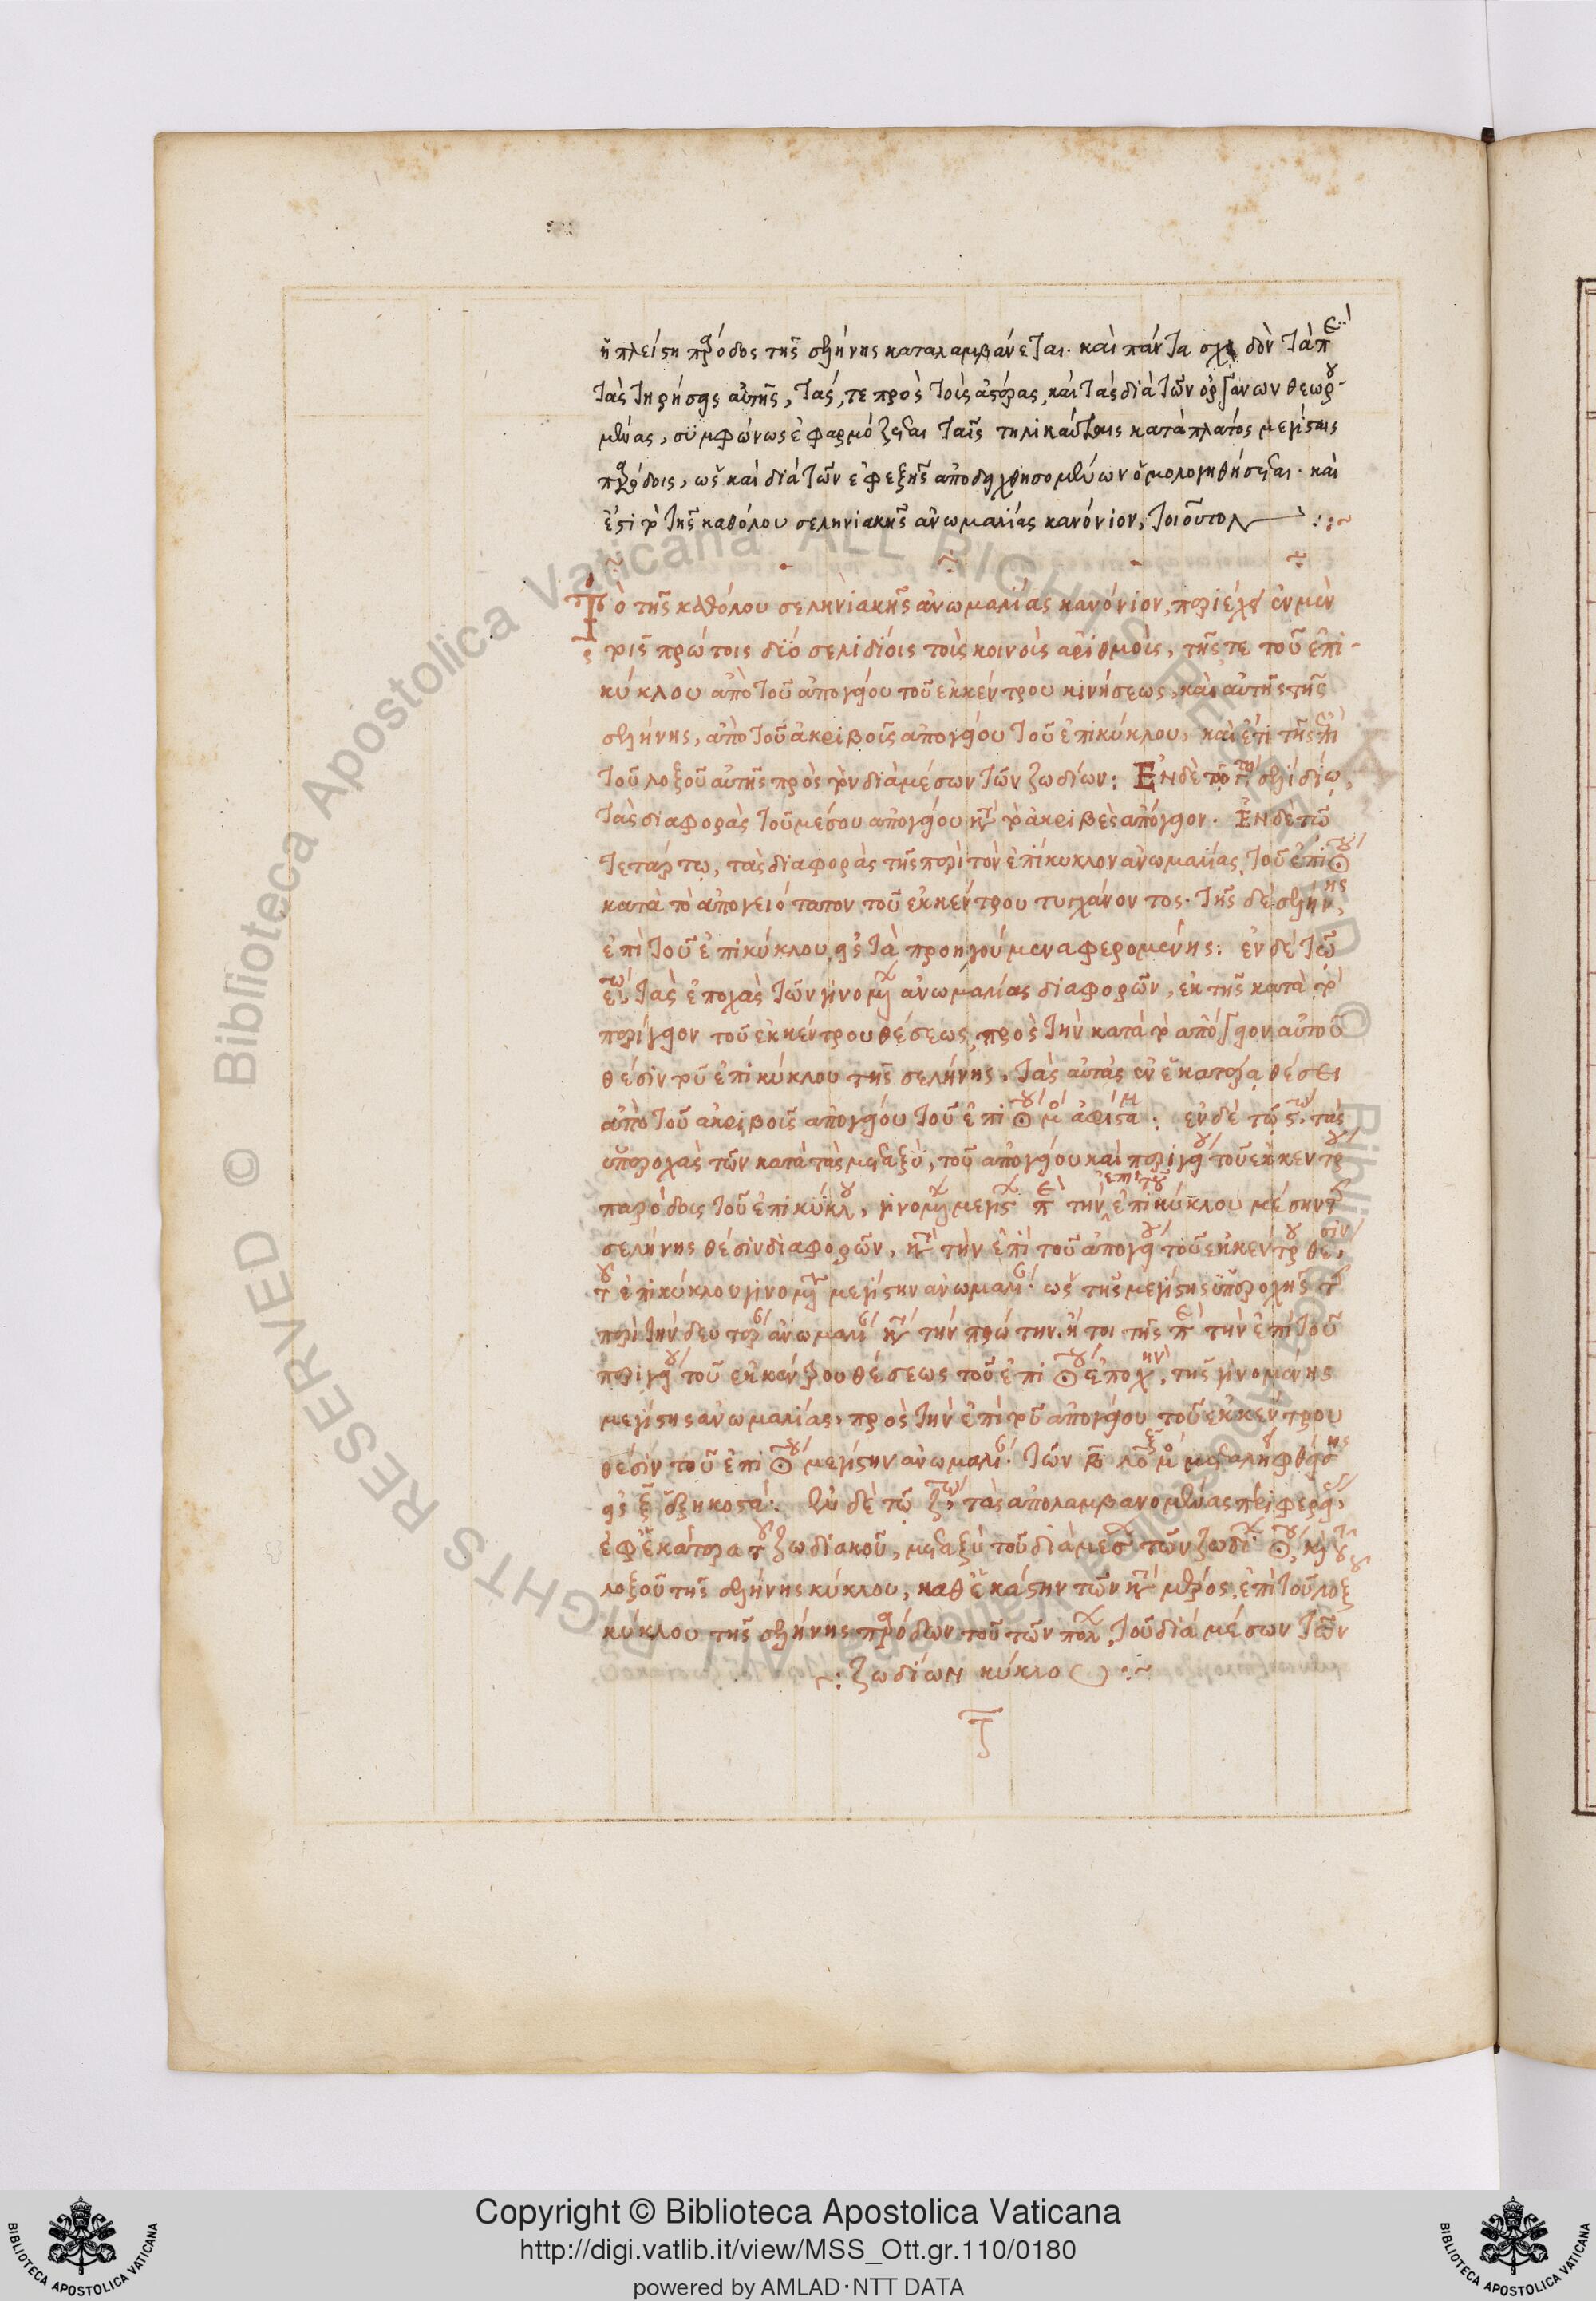 ἡ πλείστη πάροδος τῆς σελήνης καταλαμβάνεται. καὶ πάντα σχεδὸν τὰ περὶ
τὰς τηρήσεις αὐτῆς, τάς, τε πρὸς τοὺς ἀστέρας, καὶ τὰς διὰ τῶν ὀργάνων θεωρου-
μένας, συμφώνως ἐφαρμόζεσθαι ταῖς τηλικαύταις κατὰ πλάτος μεγίσταις
παρόδοις, ὡς καὶ διὰ τῶν ἐφεξῆς ἀποδειχθησομένων ὁμολογηθήσεσθαι. καὶ
ἔστι τὸ τῆς καθόλου σεληνιακῆς ἀνωμαλίας κανόνιον, τοιοῦτον
Τὸ τῆς καθόλου σεληνιακῆς ἀνωμαλίας κανόνιον, περιέχει ἐν μὲν
τοῖς πρώτοις δυὸ σελιδίοις τοὺς κοινοὺς ἀριθμοὺς, τῆς τε τοῦ ἐπι-
κύκλου ἀπὸ τοῦ ἀπογείου τοῦ ἐκκέντρου κινήσεως, καὶ αὐτῆς τῆς
σελήνης, ἀπὸ τοῦ ἀκριβοῦς ἀπογείου τοῦ ἐπικύκλου, καὶ ἔτι τῆς ἐπὶ
τοῦ λοξοῦ αὐτῆς πρὸς τὸν διὰ μέσων τῶν ζωδίων: Ἐν δὲ τῷ γῳ σελιδίῳ,
τὰς διαφορὰς τοῦ μέσου ἀπογείου καὶ τὸ ἀκριβὲς ἀπόγειον. Ἐν δὲ τῷ
τετάρτῳ, τὰς διαφορὰς τῆς περὶ τὸν ἐπίκυκλον ἀνωμαλίας, τοῦ ἐπι☉ου
κατὰ τὸ ἀπογειότατον τοῦ ἐκκέντρου τυγχάνοντος. τῆς δὲ σελήνης,
ἐπὶ τοῦ ἐπικύκλου εἰς τὰ προηγούμενα φερομένης: ἐν δὲ τῷ
εῳ τὰς ἐποχὰς τῶν γινομένων ἀνωμαλίας διαφορῶν, ἐκ τῆς κατὰ τὸ
περίγειον τοῦ ἐκκέντρου θέσεως, πρὸς τὴν κατὰ τὸ ἀπόγειον αὐτοῦ
θέσιν τοῦ ἐπικύκλου τῆς σελήνης, τὰς αὐτὰς ἐν ἑκατέρᾳ θέσει
ἀπὸ τοῦ ἀκριβοῦς ἀπογείου τοῦ ἐπι☉ου μο ἀφιστα: ἐν δὲ τῷ ϛῳ, τὰς
ὑπεροχὰς τῶν κατὰ τὰς μεταξὺ, τοῦ ἀπογείου καὶ περιγείου τοῦ ἐκκέντρου
παρόδοις τοῦ ἐπικύκλου, γινομένων μεγίστων περὶ τὴν ἐπὶ τοῦ ἐπικύκλου μέσην τῆς
σελήνης θέσιν διαφορῶν, καὶ τὴν ἐπὶ τοῦ ἀπογείου τοῦ ἐκκέντρου θέσιν,
τοῦ ἐπικύκλου γινομένην μεγίστην ἀνωμαλίαν. ὡς τῆς μεγίστης ὑπεροχῆς τῆς
περὶ τὴν δευτέραν ἀνωμαλίαν καὶ τὴν πρώτην. ἤτοι τῆς περὶ τὴν ἐπὶ τοῦ
περιγείου τοῦ ἐκκέντρου θέσεως τοῦ ἐπι☉ου ἐποχὴν, τῆς γινομένης
μεγίστης ἀνωμαλίας, πρὸς τὴν ἐπὶ τοῦ ἀπογείου τοῦ ἐκκέντρου
θέσιν τοῦ ἐπι☉ου μεγίστην ἀνωμαλίαν. τῶν β λοξ μο μεταληφθείσης
εἰς ξ ἑξηκοστά: Ἐν δὲ τῷ ζῳ, τὰς ἀπολαμβανομένας περιφερείας,
ἐφ' ἑκάτερα τοῦ ζωδιακοῦ, μεταξὺ τοῦ διὰ μέσων τῶν ζωδίων ☉ου, καὶ τοῦ
λοξοῦ τῆς σελήνης κύκλου, καθ' ἑκάστην τῶν κατὰ μέρος, ἐπὶ τοῦ λοξοῦ
κύκλου τῆς σελήνης παρόδων τοῦ τῶν πόλων, τοῦ διὰ μέσων τῶν
ζωδίων κύκλου